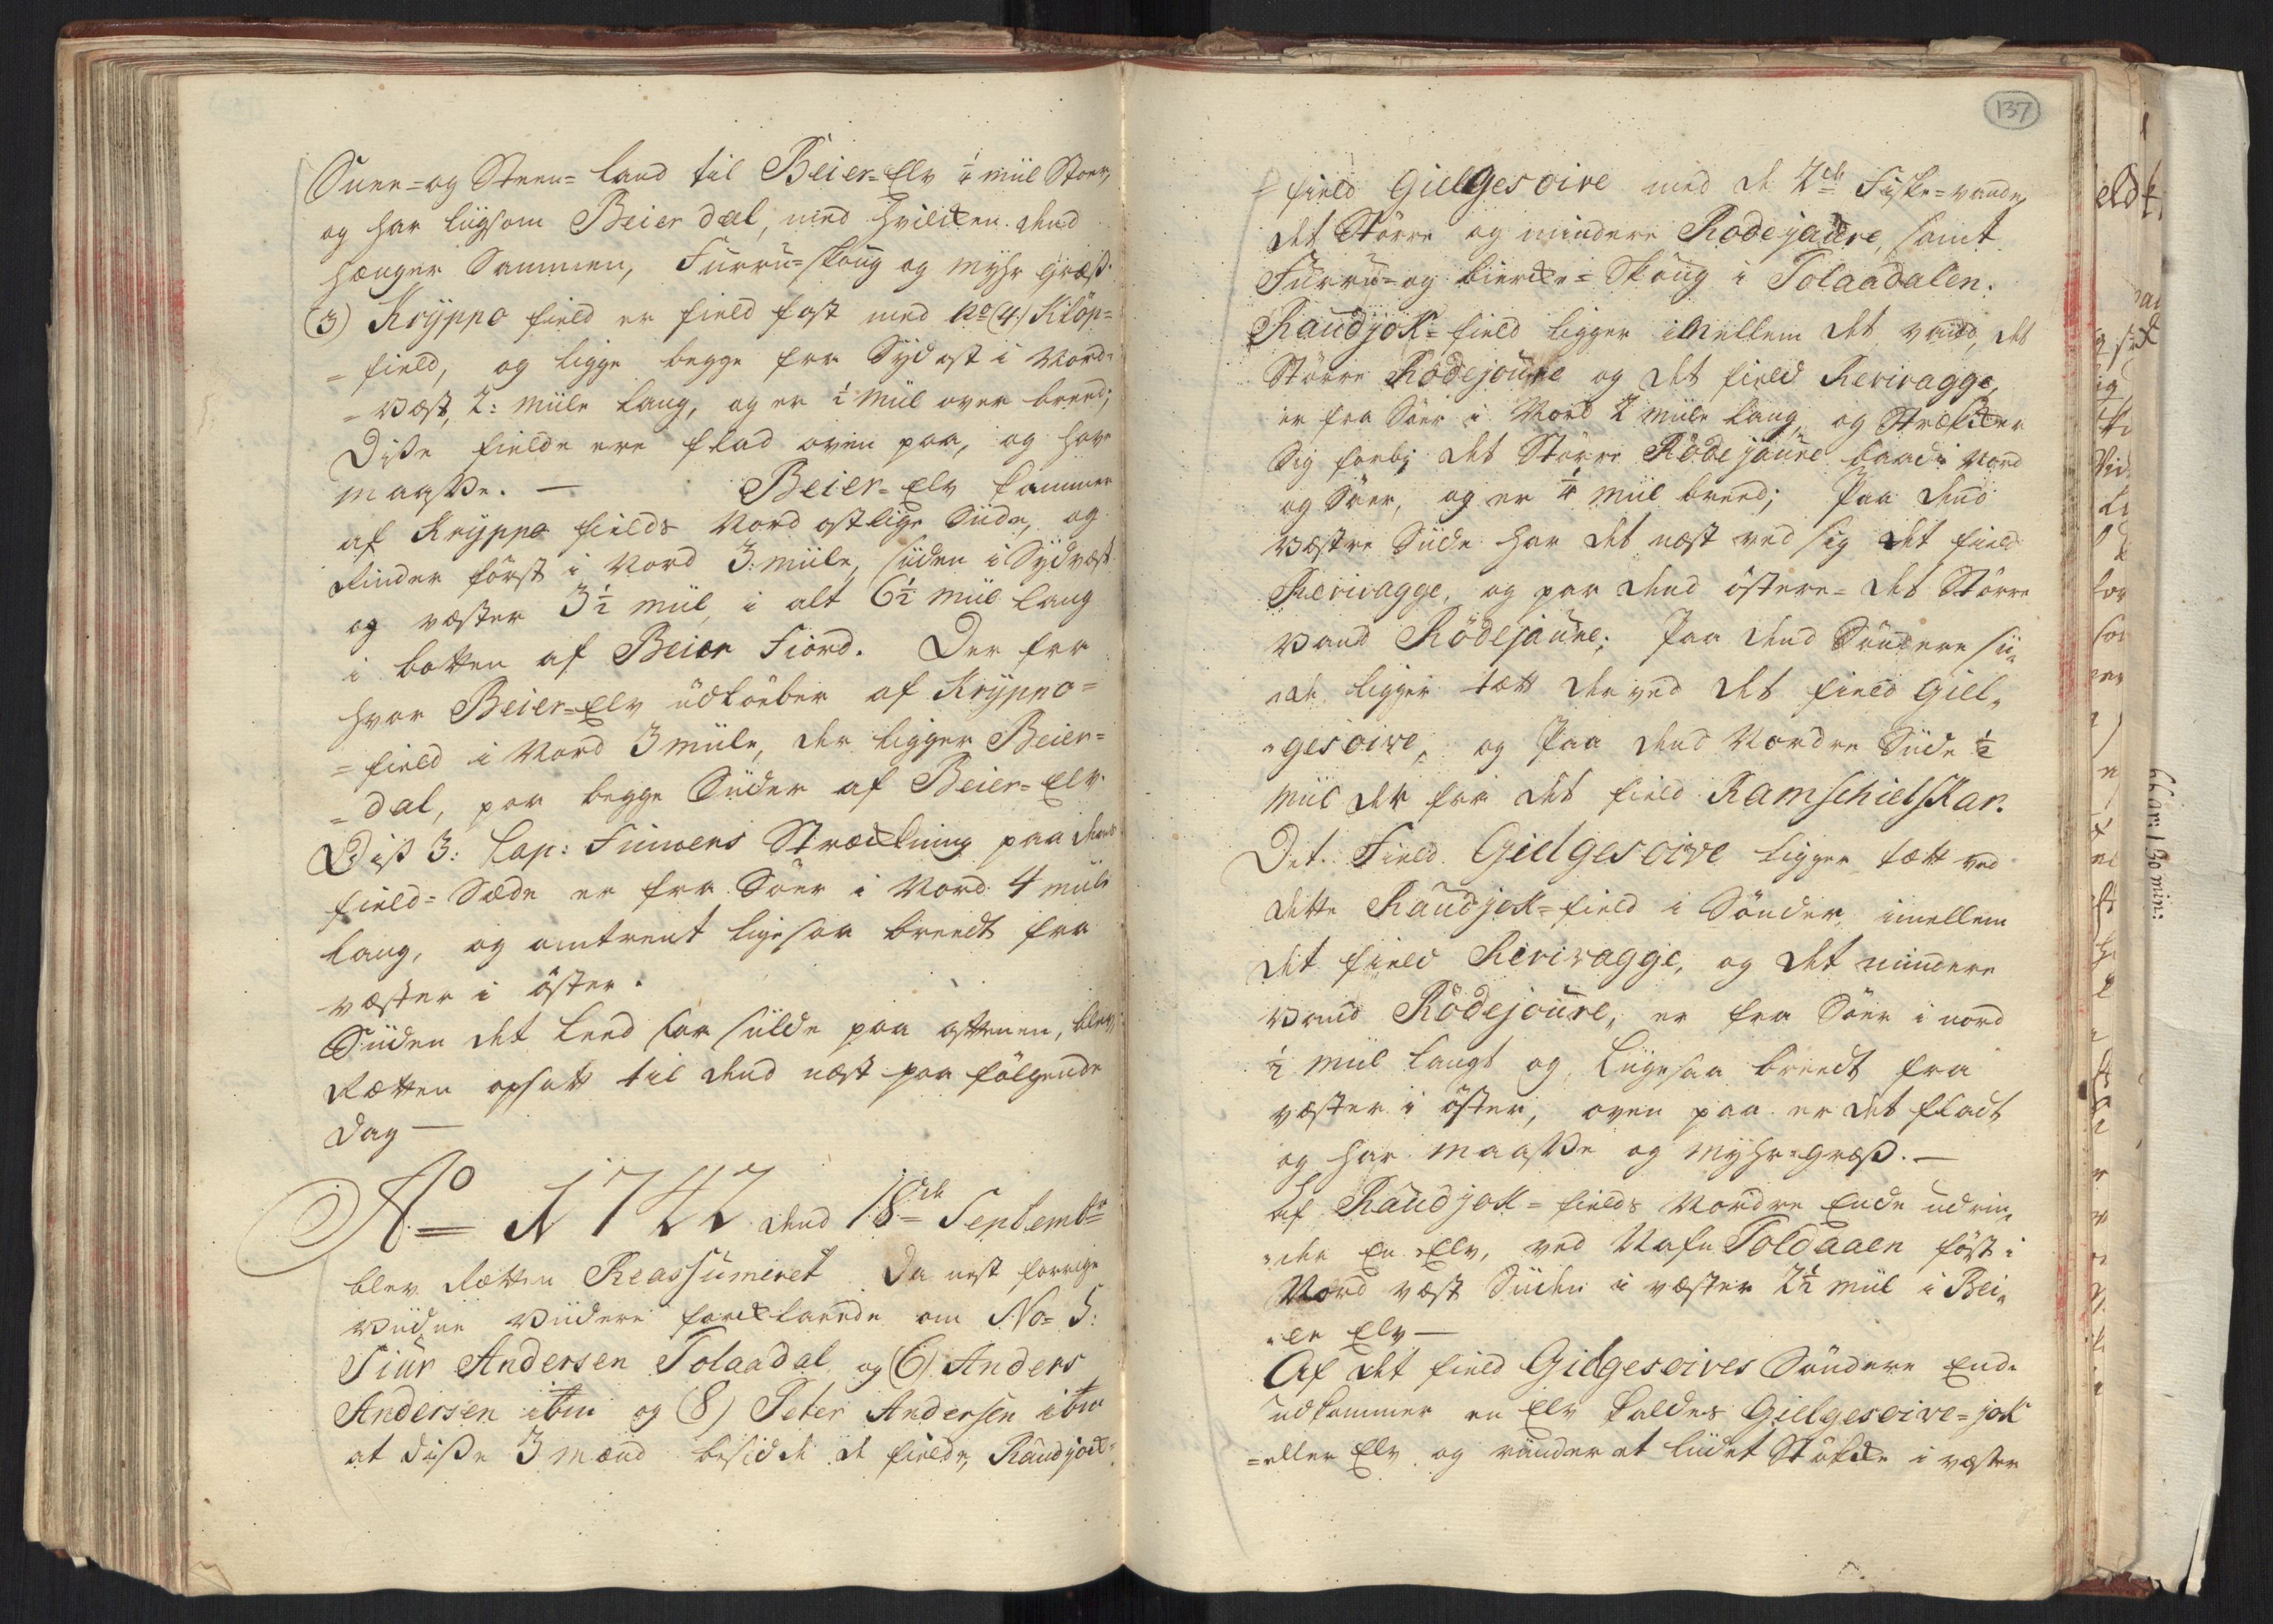 Suer-og Steen-land til Beier-Elv ½ miil Stoer,
og har liigsom Beierdal, med hvilcken dend
hænger Sammen, Furru-skoug og myhr græß.
(3) Kryppo field er field fast med No (4) Kilöp-
-field, og ligge begge fra Sydost i Nord-
-Væst, 2: miile lang, og er ½ miil over breed;
Diße fielde ere flad oven paa, og have
maaße. — Beier-Elv kommer
af Kryppo fields Nord ostlige Siide, og
Rinder först i Nord 3: miile, siiden i Sydvæst
og væster 3½ miil, i alt 6½ miil lang
i botten af Beier Fiord. Der fra
hvor Beier-Elv üdlöeber af Kryppo-
-field i Nord 3 miile, der ligger Beier-
-dal, paa begge Siider af Beier-Elv.
Diß 3: Lap: Finners Strækning paa deres
field-Sæde er fra Söer i Nord 4 miile
lang, og omtrent ligesaa breedt fra
væster i öster.
Siiden det leed saa silde paa aftenen, blev
Retten opsatt til dend næst paa følgende
Dag —
Ao 1742 dend 18de Septembr
blev Retten Reassumeret Da nest forrige
Viidne Viidere forklarede om No 5:
Siur Andersen Tolaadal og (6) Anders
Andersen ibm og (8) Peter Andersen ibm
at diße 3 mænd besidde de fielde, Raudjock-
137
field Gielgesoive med de 2de Fiske-vande
det Större og mindere Rodejaure, samt
Furru-og bircke-Skoug i Tolaadalen.
Raudjok-field ligger imellem det vand, det
Större Rödejaure og det field Rerivagge,
er fra Söer i Nord 2 miile lang, og Strækker
sig forbj det Större Rödejaure baade Nord
og Söer, og er ¼ miil breed; Paa dend
væstre Siide har det næst ved sig det field
Rerivagge, og paa dend östere- det Större
Vand Rödejaure; Paa dend Söndere sii-
-de ligger tætt derved det field Giel-
-gesoive, og Paa dend Nordre Siide ½
miil der fra det field RamschielsKar.
Det Field Gielgesoive ligger tætt ved
dette Raudjok-field i Sönder, imellem
det field Rerivagge, og det mindere
Vand Rödejaure, er fra Söer i nord
½ miil langt og Liigesaa breedt fra
væster i öster, oven paa er det fladt
og har maaße og myhr-græß. —
Af Raudjok-fields Nordre Ende udrin-
-der En Elv, ved Nafn Toldaaen först i
Nord væst Siiden i væster 2½ miil i Bei-
-er Elv —
Af det field Gielgesoives Söndere Ende
udkommer en Elv kaldes Gielgesoive-jok
-eller Elv og rinder et liidet Stöcke i væster